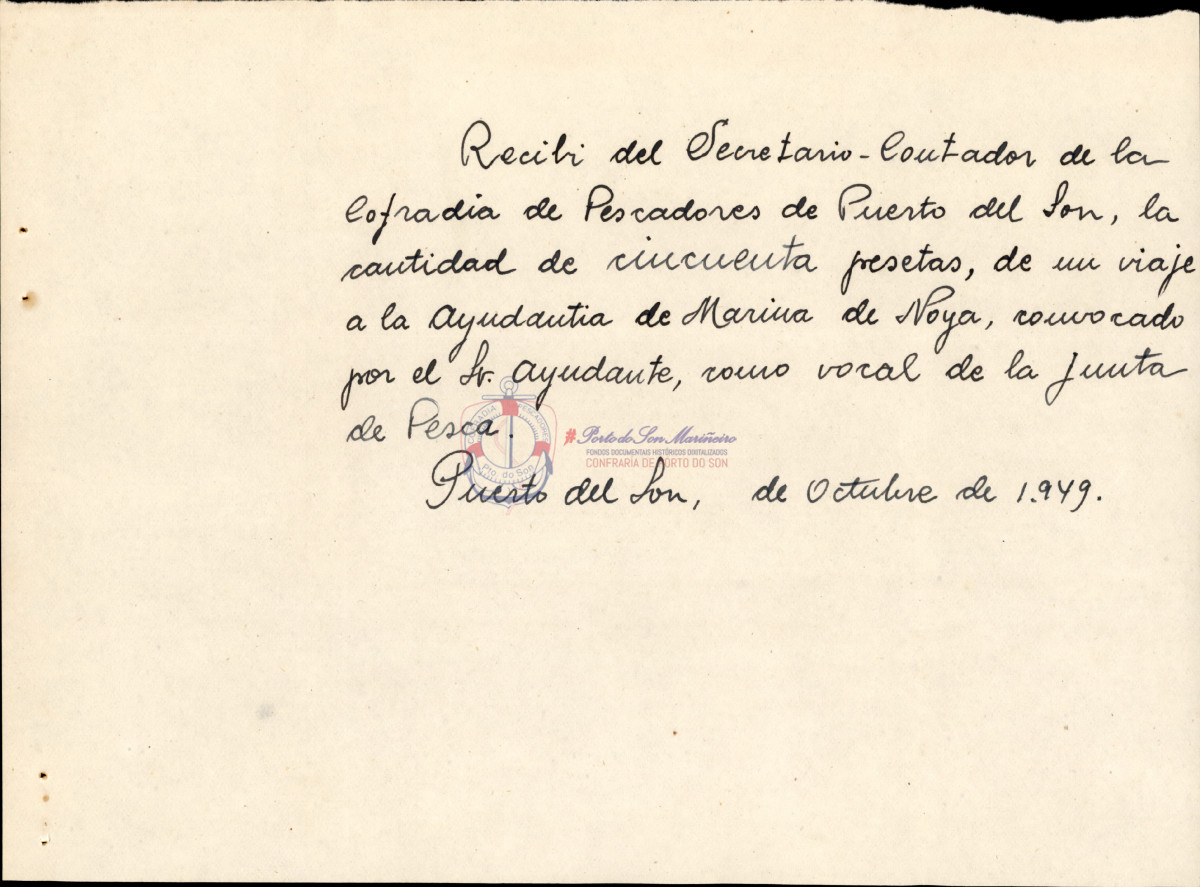 Recibi del Secretario-Contador de la
Cofradia de Pescadores de Puerto del Son, la
cantidad de cincuenta pesetas, de un viaje
a la Ayudantia de Marina de Noya, convocado
por el Sr. Ayudante, como vocal de la Junta
de Pesca.
COFRADIA PESCADORES
Pto. do Son
#Porto do Son Mariñeiro
FONDOS DOCUMENTAIS HISTÓRICOS DIXITALIZADOS
CONFRARÍA DE PORTO DO SON
Puerto del Son, de Octubre de 1.949.